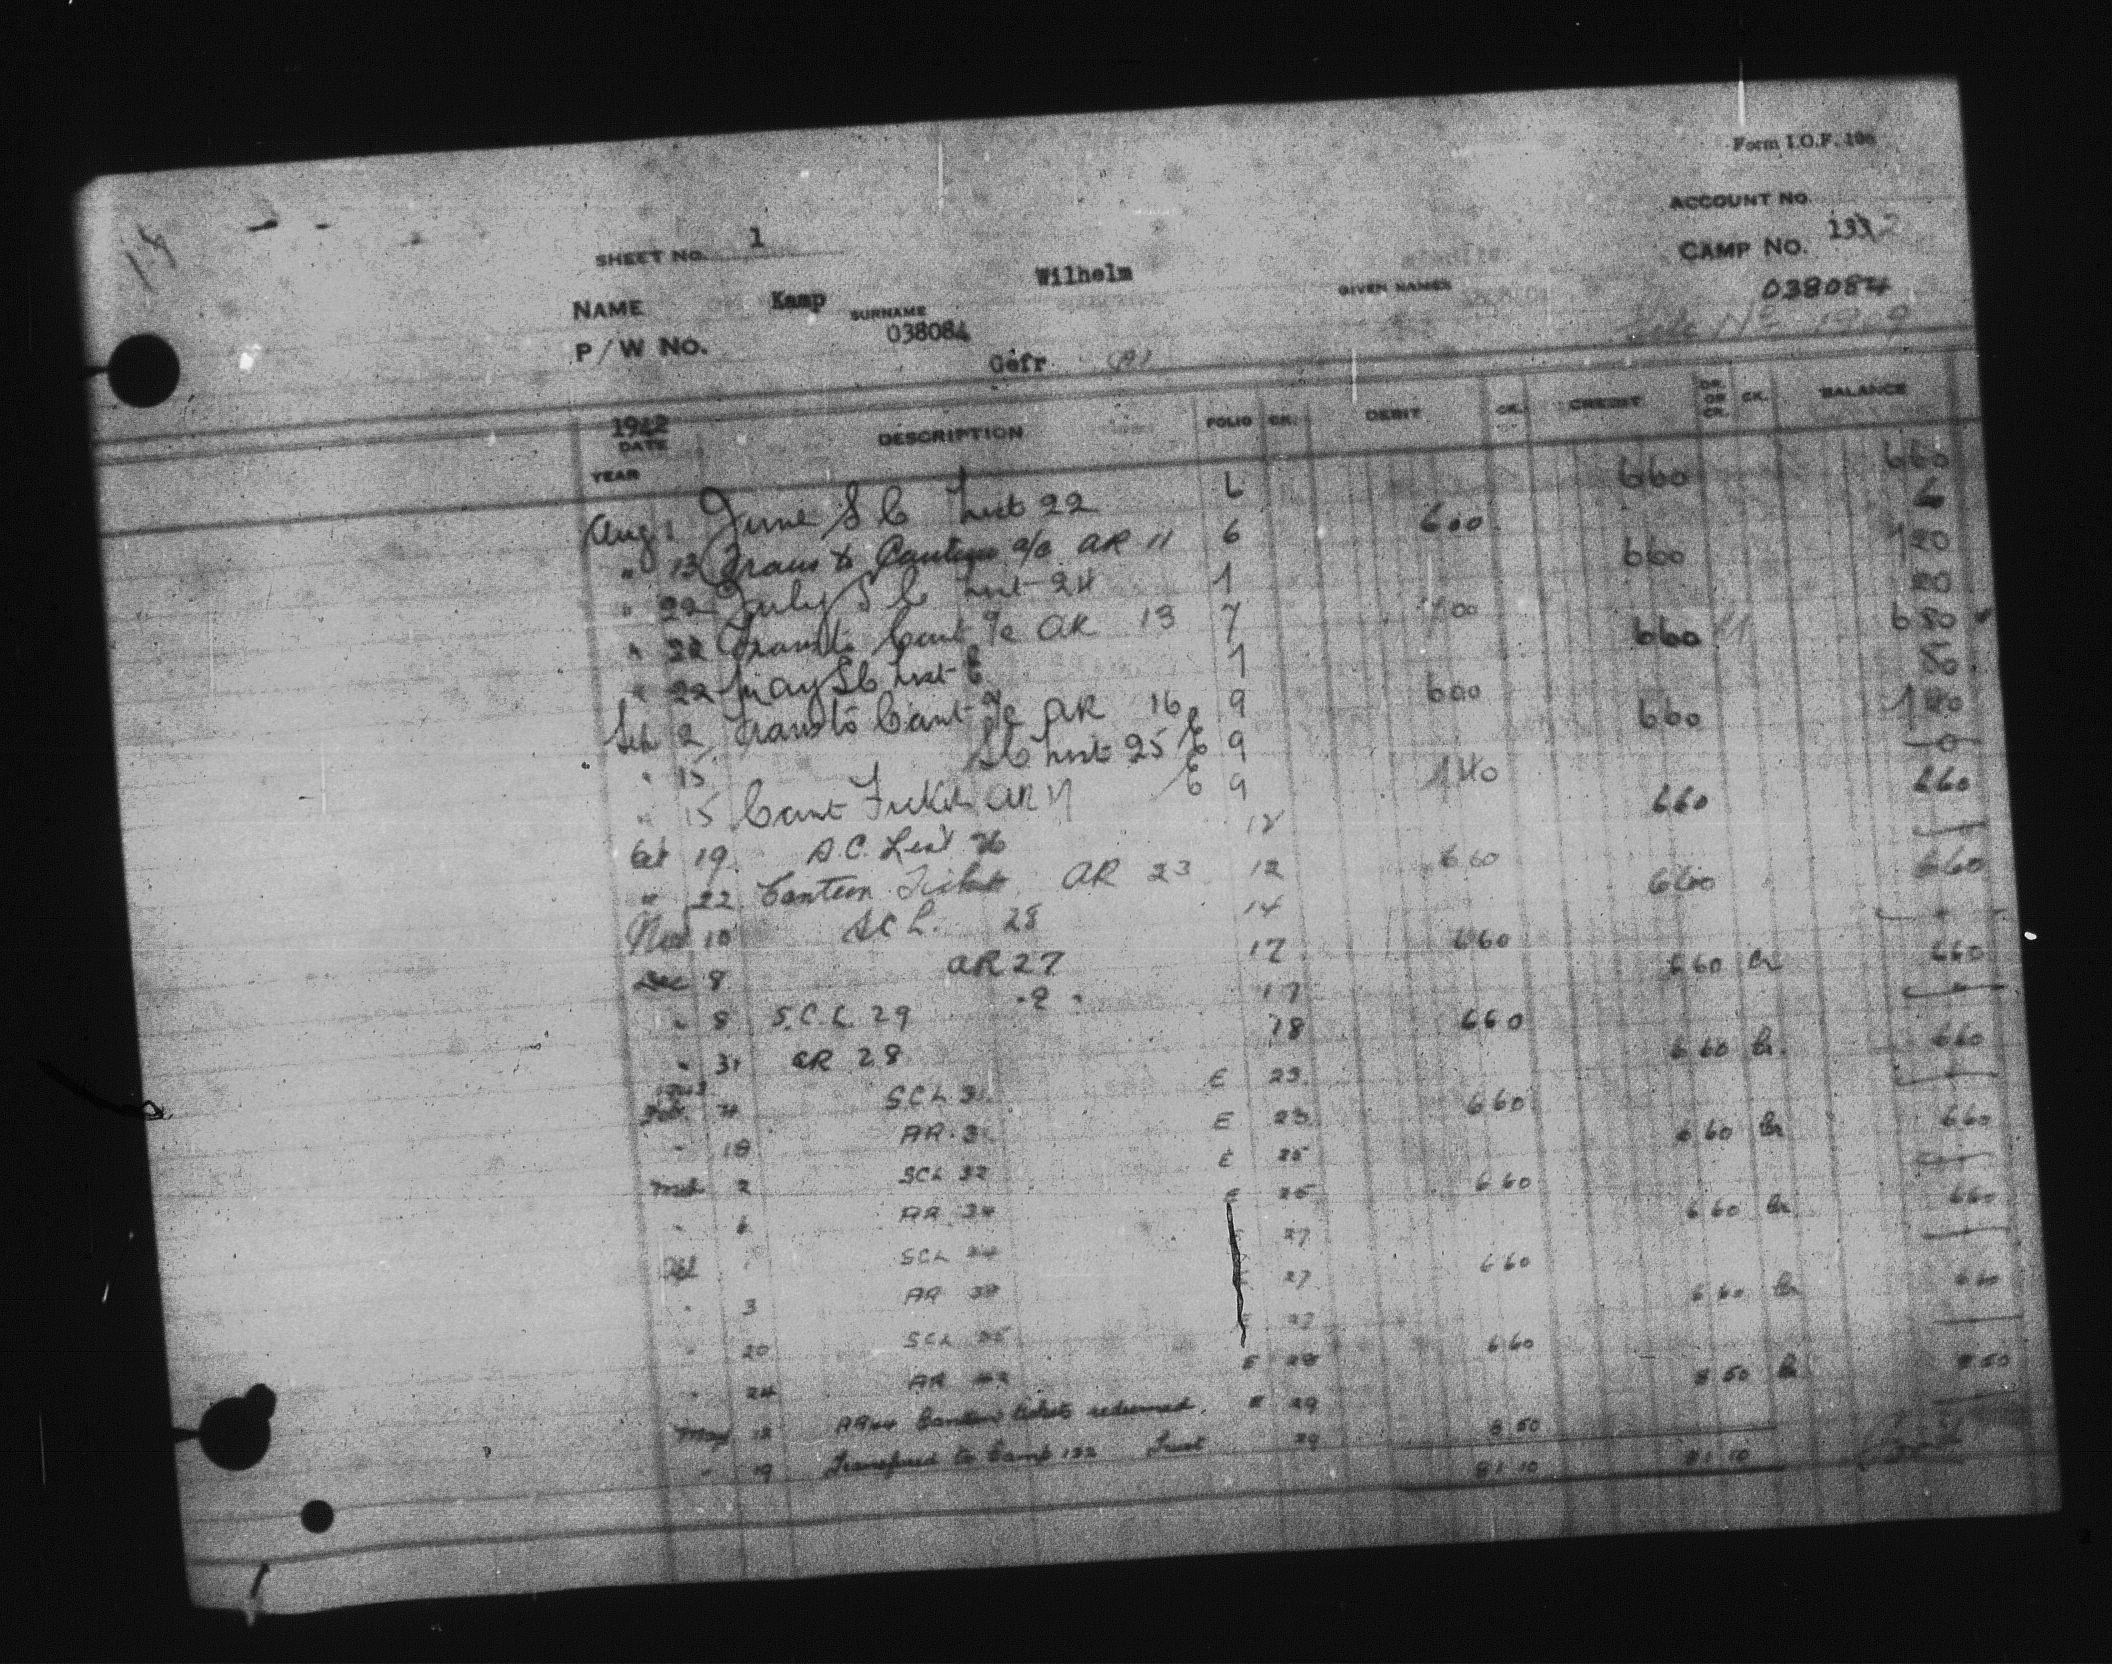 Form I.O.F. 106
ACCOUNT NO.
SHEET NO. 1
CAMP NO. 133
NAME Kamp SURNAME Wilhelm GIVEN NAMES
038084
P/W NO. 038084 Gefr
1942
DATE DESCRIPTION FOLIO CK. DEBIT CK. CREDIT DR. OR CR. CK. BALANCE
YEAR
Aug 1 June S C List 22 6 660 660
" 13 Trans to Canteen a/c AR 11 6 600
" 22 July S C List 24 1 660 720
" 22 Trans to Cant a/c AR 13 7 700 20
" 22 May SC List 1 660 680
Sep 2 Trans to Cant a/c AR 16 9 600 80
" 15 SC List 25 E 9 660 740
" 15 Cant Ticket AR 17 E 9 740 0
Oct 19 S.C. List 26 12 660 660
" 22 Canteen Tickets AR 23 12 660
Nov 10 SC L. 28 14 660 660
Dec 8 AR 27 17 660
" 8 S.C.L. 29 17 660 Cr 660
" 31 AR 28 18 660
1943
Feb SCL 31 E 23 660 Cr 660
" 18 AR 31 E 23 660
Mch 2 SCL 32 E 25 660 Cr 660
" 6 AR 34 E 25 660
SCL 34 27 660 Cr 660
" 3 AR 38 27 660
" 20 SCL 35 27 660 Cr 660
" 24 AR 42 E 28 660
May 12 AR 44 Canteen tickets redeemed E 29 8 50 Cr 8 50
" 19 Transferred to Camp 132 Trust 29 8 50
81 10 81 10